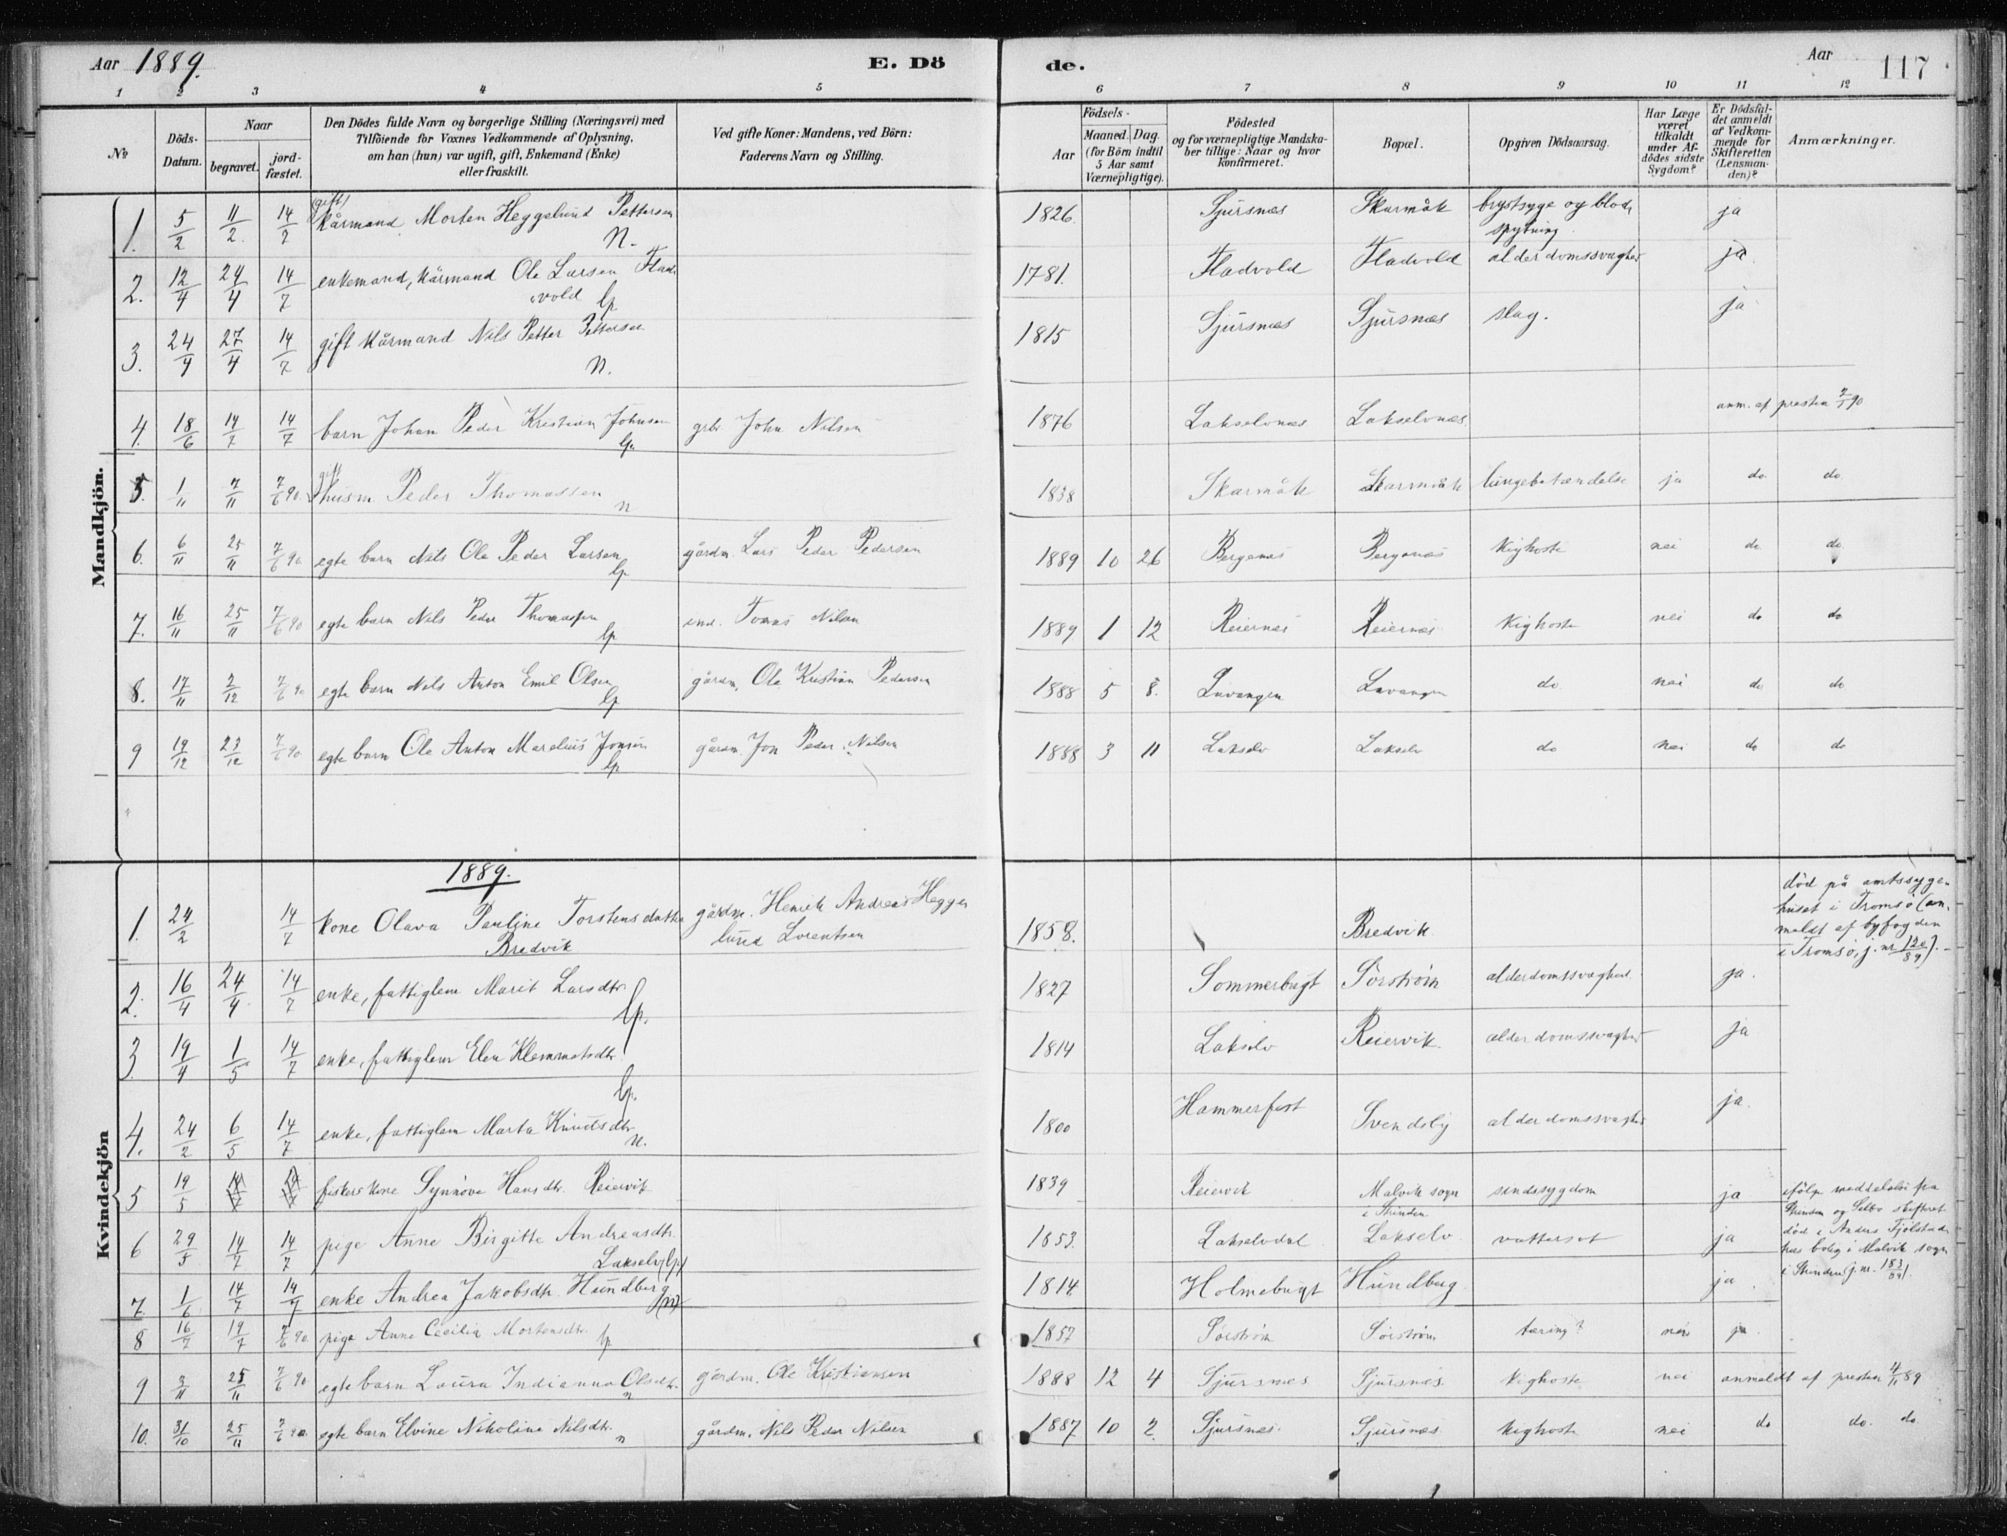 Aar 1889. E. Döde. Aar 117
1 2 3 4 5 6 7 8 9 10 11 12
№
Döds-Datum.
Naar
begravet.
jord-fæstet.
Den Dödes fulde Navn og borgerlige Stilling (Næringsvei) med
Tilföiende for Voxnes Vedkommende af Oplysning,
om han (hun) var ugift, gift, Enkemand (Enke)
eller fraskilt.
Ved gifte Koner: Mandens, ved Börn:
Faderens Navn og Stilling.
Födsels-
Aar
Maaned. Dag.
(for Börn indtil
5 Aar samt
Værnepligtige).
Födested
og for værnepligtige Mandska-
ber tillige: Naar og hvor
konfirmeret.
Bopæl.
Opgiven Dödsaarsag.
Har Læge
været
tilkaldt
under Af-
dödes sidste
Sygdom?
Er Dödsfal-
det anmeldt
af Vedkom-
mende for
Skifteretten
(Lensman-
den)?
Anmærkninger.
Mandkjön.
1. 5/2 11/2 14/7 (gift) kårmand Morten Heggelund Pettersen n. 1826. Sjursnæs Skarmåk brystsyge og blodspytning ja
2. 12/4 24/4 14/7 enkemand, kårmand Ole Larsen Fladvold lp. 1781. Fladvold Fladvold alderdomssvaghed ja
3. 24/4 27/4 14/7 gift kårmand Nils Petter Pettersen n. 1815 Sjursnæs Sjursnæs slag. ja
4. 18/6 14/7 14/7 barn Johan Peder Kristian Johnsen lp. grbr. John Nilsen 1876 Lakselvnæs Lakselvnæs anm. af presten 7/1 90
5. 1/11 7/11 7/6 90. gift husm. Peder Thomassen n 1838 Skarmåk Skarmåk lungebetændelse ja do do.
6. 6/11 25/11 7/6 90. egte barn Nils Ole Peder Larsen lp gårdm. Lars Peder Pedersen 1889 10 26 Bergenæs Bergenæs Kighoste nei do. do.
7. 16/11 25/11 7/6 90 egte barn Nils Peder Thomassen lp ind. Tomas Nilsen 1889 1 12 Reiernæs Reiernæs Kighoste nei do do
8. 17/11 2/12 7/6 90 egte barn Nils Anton Emil Olsen lp gårdm. Ole Kristian Pedersen 1888 5 8. Lavangen Lavangen do. nei do do
9 19/12 23/12 7/6 90 egte barn Ole Anton Marelius Jonsen lp gårdm. Jon Peder Nilsen 1888 3 11 Lakselv Lakselv do nei do do
1889.
Kvindekjön
1. 24/2 14/7 kone Olava Pauline Torstensdatter Bredvik gårdm. Henrik Andreas Heggelund Lorentsen 1858. Bredvik död på amtssygehuset i Tromsö (anmeldt af byfogden i Tromsö, j. nr 120/89). –
2. 16/4 24/4 14/7 enke, fattiglem Marit Larsdtr. lp. 1827 Sommerbugt Sörström alderdomssvaghed ja.
3. 19/4 1/5 14/7 enke, fattiglem Elen Klemmetsdtr. lp. 1814 Lakselv Reiervik. alderdomssvaghed ja
4. 24/2 6/5 14/7 enke, fattiglem Marta Knudsdtr. n. 1800 Hammerfest Svendsby alderdomssvaghed ja.
5 19/5 fiskerkone Synnöve Hansdtr. Reiervik 1839 Reiervik Malvik sogn i Strinden sindssygdom ja ifölge meddelelse fra Strinden og Selbo skifteret död i Anders Fjölstads hus bolig i Malvik sogn i Strinden (j. nr. 183/89).
6 29/5 14/7 14/7 pige Anne Birgitte Andreasdtr. Lakselv (lp.) 1853. Lakselvdal Lakselv. vattersot ja
7. 1/6 14/7 14/7 enke Andrea Jakobsdtr. Hundberg (n.) 1814. Holmebugt Hundberg. ja
8 16/7 19/7 7/6 90. pige Anne Cecilia Mortensdtr. lp 1857 Sörström Sörström tæring? nei ja
9 3/11 25/11 7/6 90 egte barn Laura Indianna Olsdtr. n gårdm. Ole Kristiansen 1888 12 4 Sjursnæs Sjursnæs. Kighoste nei anmeldt af presten 4/11 89
10. 31/10 25/11 7/6 90. egte barn Elvine Nikoline Nilsdtr. n gårdm. Nils Peder Nilsen 1887 10 2. Sjursnæs. Sjursnæs. Kighoste nei do do. do.